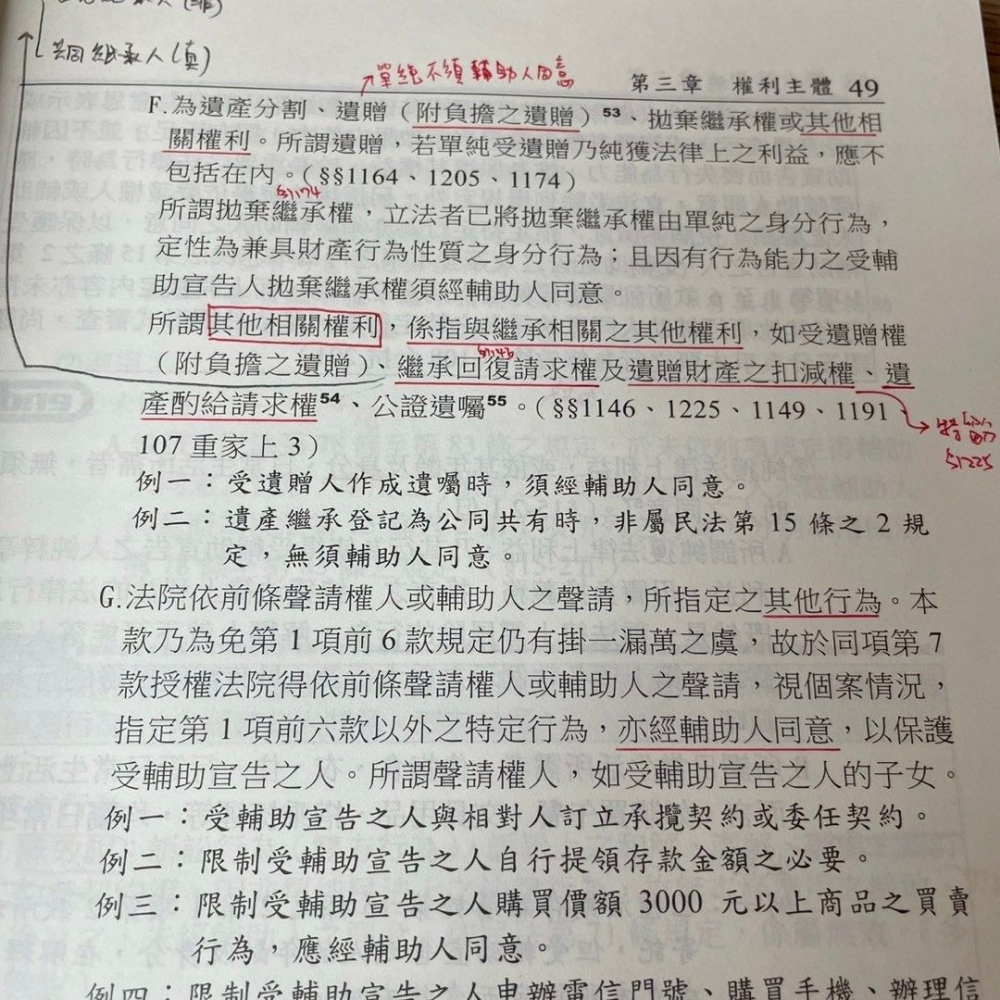 共同繼承人(真)
↗單純不須輔助人同意
第三章 權利主體 49
F.為遺產分割、遺贈(附負擔之遺贈)53、拋棄繼承權或其他相
關權利。所謂遺贈,若單純受遺贈乃純獲法律上之利益,應不
包括在內。(§§1164、1205、1174)
§1174
所謂拋棄繼承權,立法者已將拋棄繼承權由單純之身分行為,
定性為兼具財產行為性質之身分行為;且因有行為能力之受輔
助宣告人拋棄繼承權須經輔助人同意。
所謂其他相關權利,係指與繼承相關之其他權利,如受遺贈權
§1146
(附負擔之遺贈)、繼承回復請求權及遺贈財產之扣減權、遺
產酌給請求權54、公證遺囑55。(§§1146、1225、1149、1191、
§1225
107 重家上 3)
例一:受遺贈人作成遺囑時,須經輔助人同意。
例二:遺產繼承登記為公同共有時,非屬民法第 15 條之 2 規
定,無須輔助人同意。
G.法院依前條聲請權人或輔助人之聲請,所指定之其他行為。本
款乃為免第 1 項前 6 款規定仍有掛一漏萬之虞,故於同項第 7
款授權法院得依前條聲請權人或輔助人之聲請,視個案情況,
指定第 1 項前六款以外之特定行為,亦經輔助人同意,以保護
受輔助宣告之人。所謂聲請權人,如受輔助宣告之人的子女。
例一:受輔助宣告之人與相對人訂立承攬契約或委任契約。
例二:限制受輔助宣告之人自行提領存款金額之必要。
例三:限制受輔助宣告之人購買價額 3000 元以上商品之買賣
行為,應經輔助人同意。
例四:限制受輔助宣告之人申辦電信門號、購買手機、辦理信